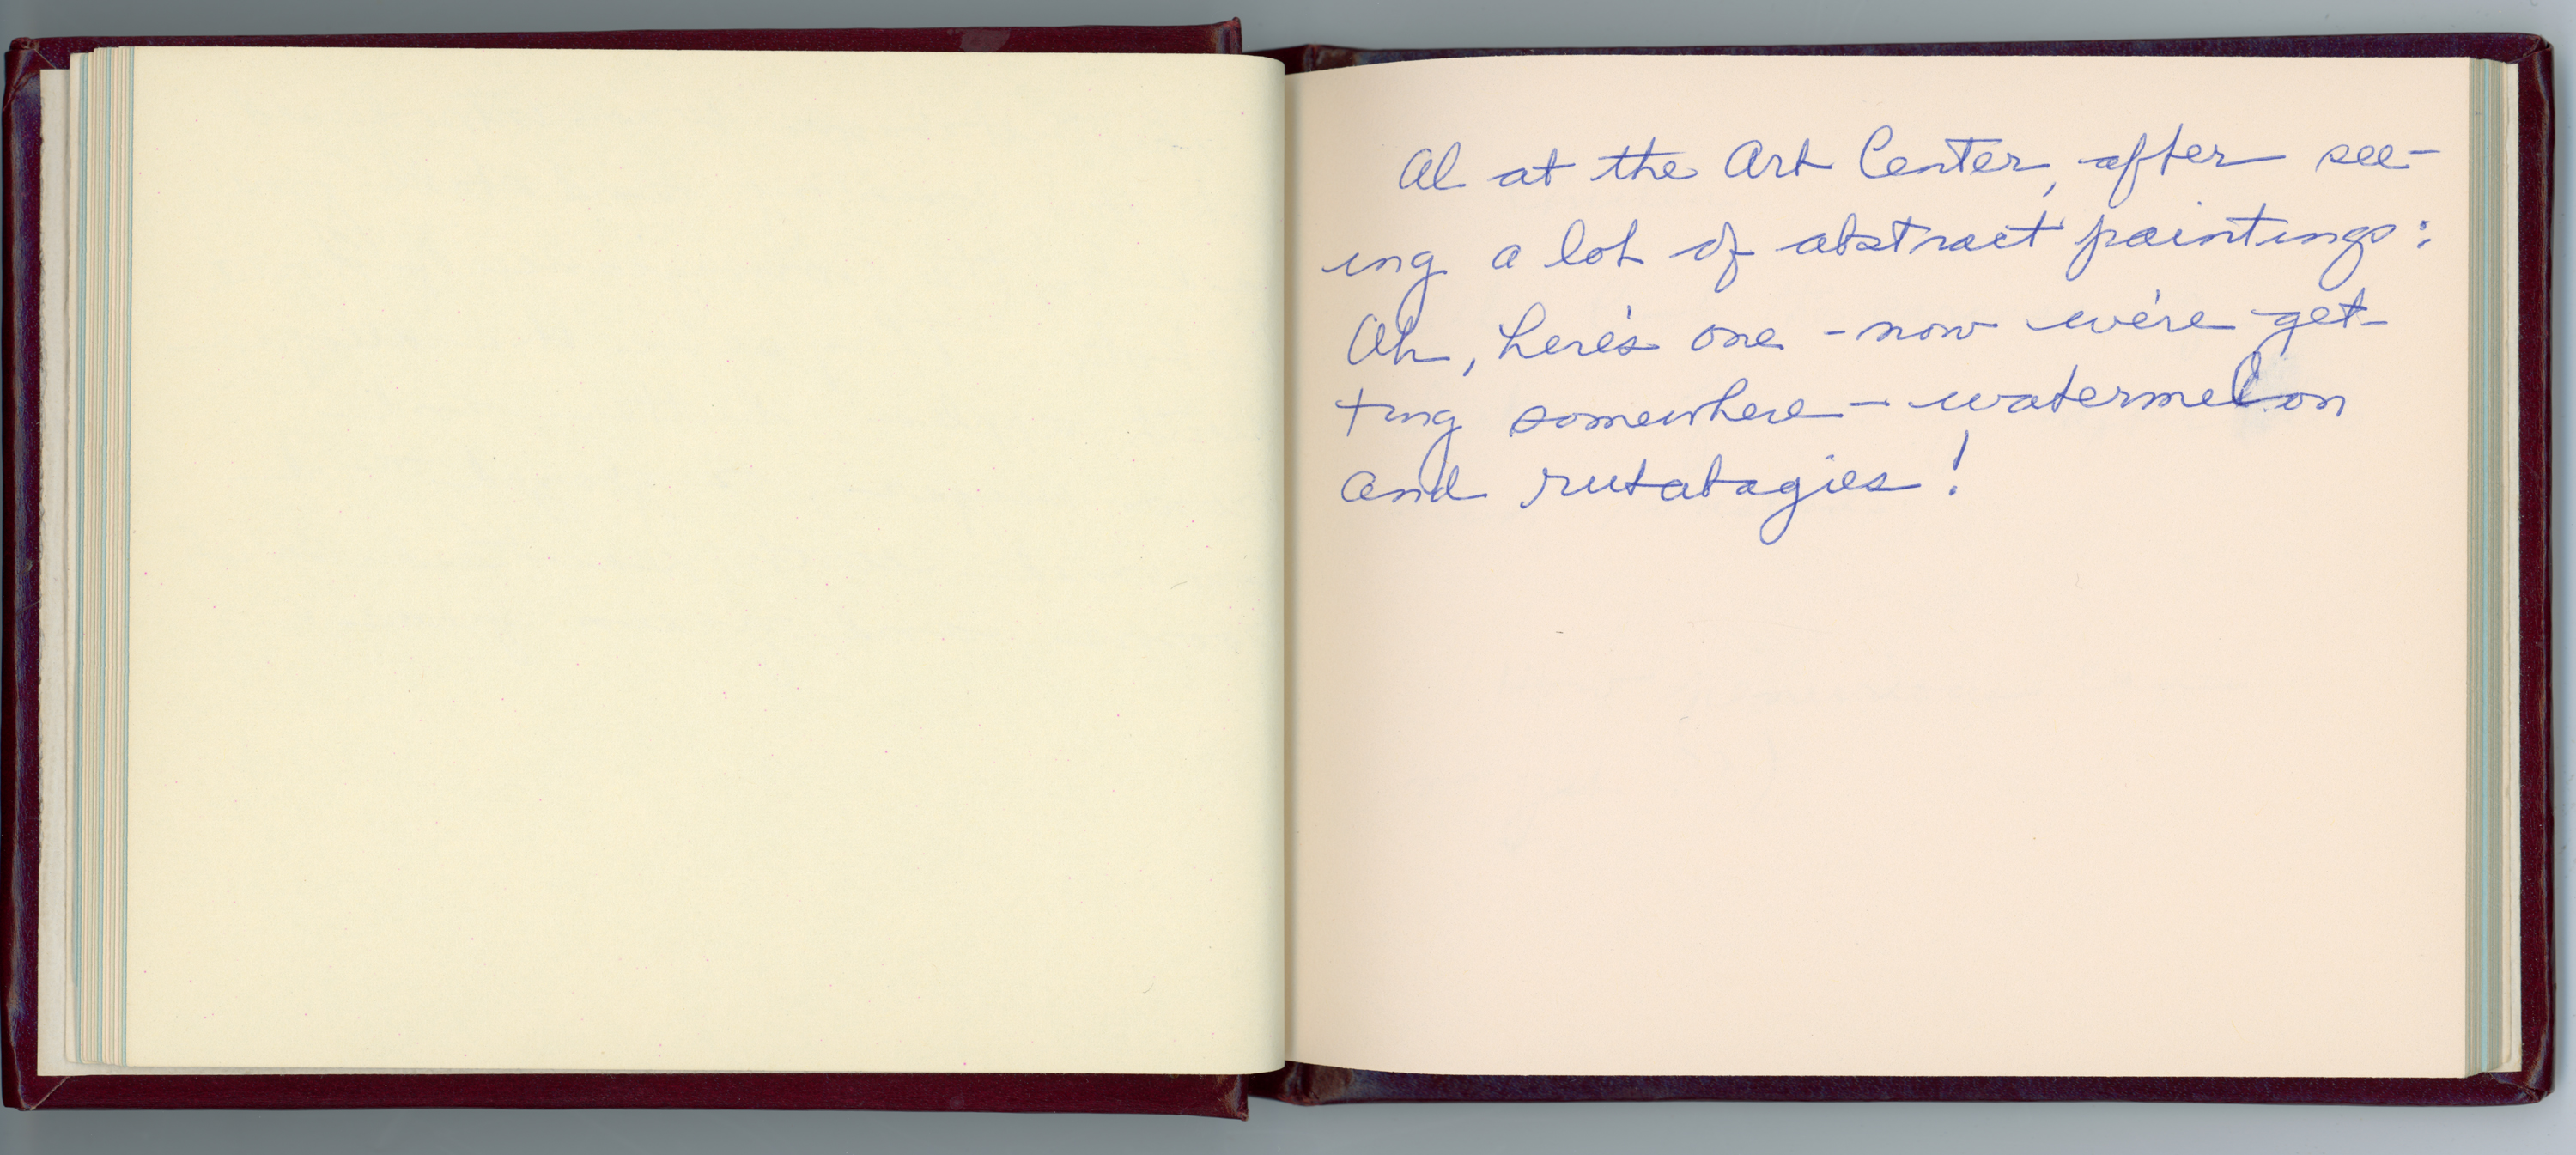 Al at the Art Center, after see-
ing a lot of abstract paintings:
Ah, here's one - now we're get-
ting somewhere - watermelon
and rutabagies!